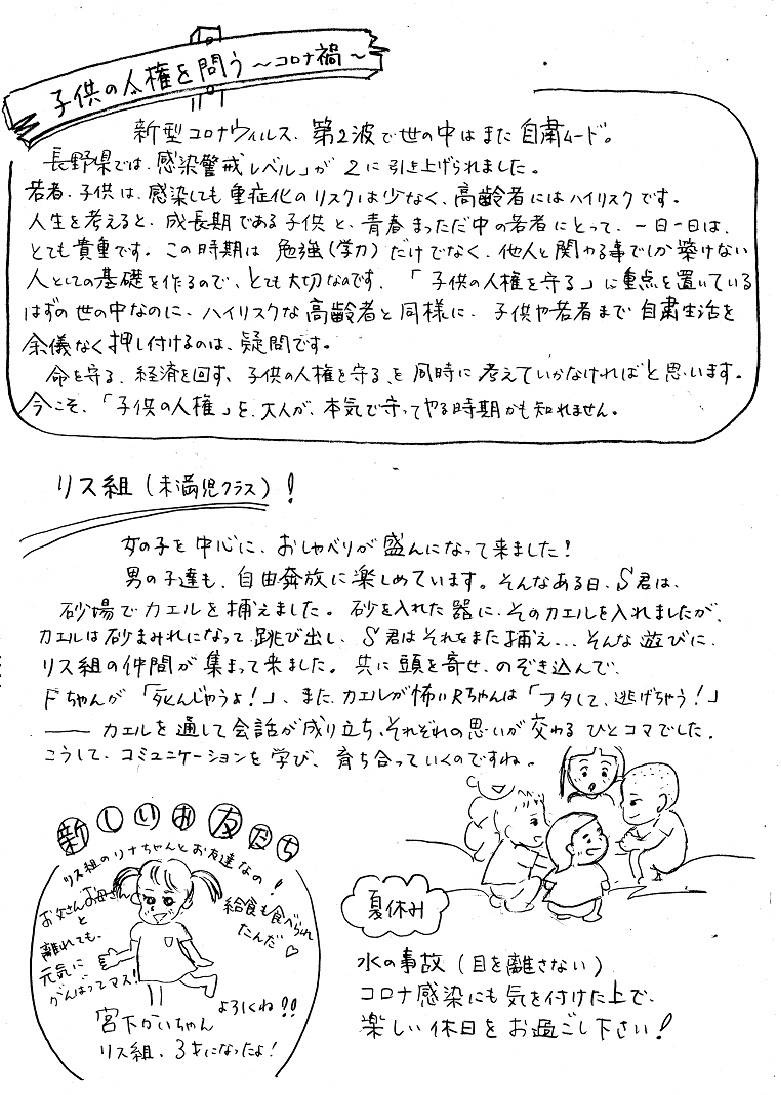 子供の人権を問う 〜コロナ禍〜
新型コロナウィルス、第2波で世の中はまた自粛ムード。
長野県では、感染警戒レベル」が2に引き上げられました。
若者、子供は、感染しても重症化のリスクは少なく、高齢者にはハイリスクです。
人生を考えると、成長期である子供と、青春まっただ中の若者にとって、一日一日は、
とても貴重です。この時期は勉強(学力)だけでなく、他人と関わる事でしか築けない
人としての基礎を作るので、とても大切なのです。「子供の人権を守る」に重点を置いている
はずの世の中なのに、ハイリスクな高齢者と同様に、子供や若者まで自粛生活を
余儀なく押し付けるのは、疑問です。
命を守る、経済を回す、子供の人権を守る、を同時に考えていかなければと思います。
今こそ、「子供の人権」を、大人が、本気で守ってやる時期かも知れません。
リス組(未満児クラス)!
女の子を中心に、おしゃべりが盛んになって来ました!
男の子達も、自由奔放に楽しめています。そんなある日、S君は、
砂場でカエルを捕えました。砂を入れた器に、そのカエルを入れましたが、
カエルは砂まみれになって跳び出し、S君はそれをまた捕え...そんな遊びに、
リス組の仲間が集まって来ました。共に頭を寄せ、のぞき込んで、
Fちゃんが「死んじゃうよ!」、また、カエルが怖いRちゃんは「フタして、逃げちゃう!」
――カエルを通して会話が成り立ち、それぞれの思いが交わるひとコマでした。
こうして、コミュニケーションを学び、育ち合っていくのですね。
新しいお友だち
リス組のリナちゃんとお友達なの!
お父さんお母さん
と
離れても、
元気に
がんばってマス!
給食も食べられ
たんだ♡
よろしくね!!
宮下かいちゃん
リス組、3才になったよ!
夏休み
水の事故(目を離さない)
コロナ感染にも気を付けた上で、
楽しい休日をお過ごし下さい!